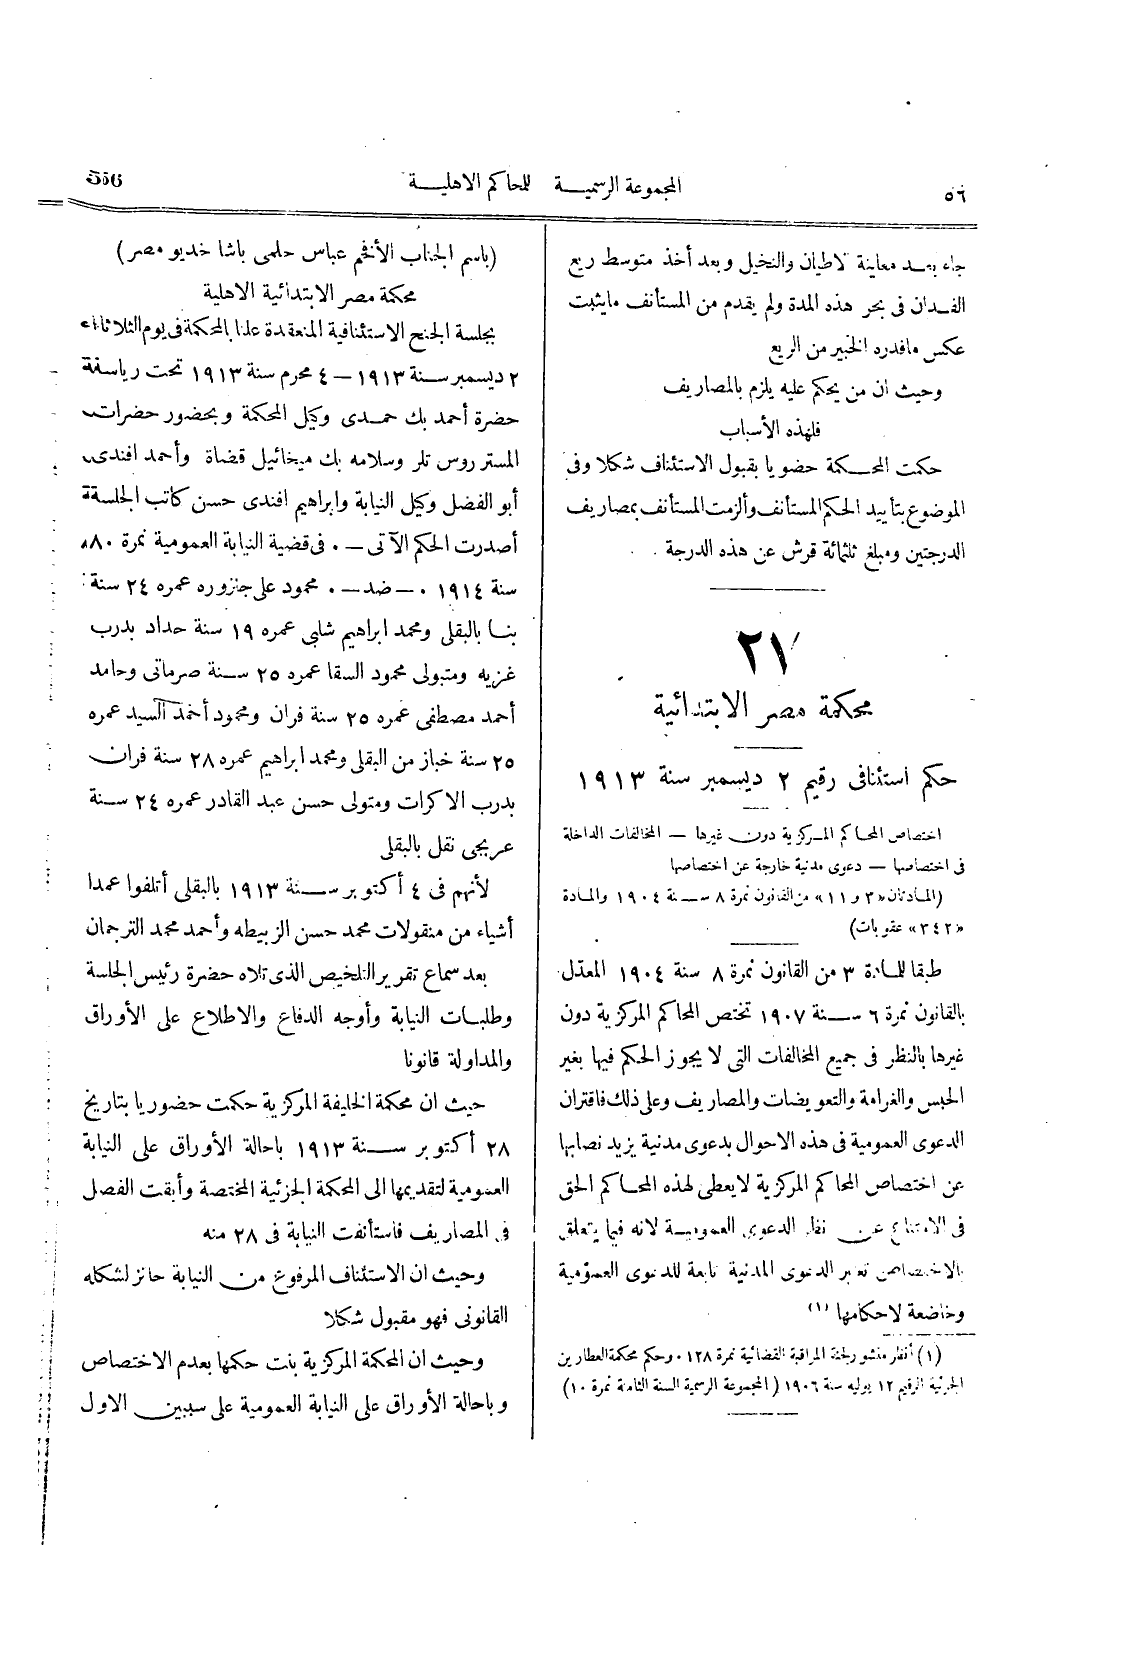 ٥٦
المجموعة الرسمية للمحاكم الاهلية
556
جاء بعد معاينة الاطيان والنخيل وبعد أخذ متوسط ريع
الفدان فى بحر هذه المدة ولم يقدم من المستأنف مايثبت
عكس ماقدره الخبير من الريع
وحيث ان من يحكم عليه يلزم بالمصاريف
فلهذه الأسباب
حكمت المحكمة حضوريا بقبول الاستئناف شكلا وفى
الموضوع بتأييد الحكم المستأنف وألزمت المستأنف بمصاريف
الدرجتين ومبلغ ثلثمائة قرش عن هذه الدرجة
٢١
محكمة مصر الابتدائية
حكم استئنافى رقيم ٢ ديسمبر سنة ١٩١٣
اختصاص المحاكم المركزية دون غيرها — المخالفات الداخلة
فى اختصاصها — دعوى مدنية خارجة عن اختصاصها
(المادتان «٣ و١١» من القانون نمرة ٨ سنة ١٩٠٤ والمادة
«٣٤٢» عقوبات)
طبقا للمادة ٣ من القانون نمرة ٨ سنة ١٩٠٤ المعدّل
بالقانون نمرة ٦ سنة ١٩٠٧ تختص المحاكم المركزية دون
غيرها بالنظر فى جميع المخالفات التى لا يجوز الحكم فيها بغير
الحبس والغرامة والتعويضات والمصاريف وعلى ذلك فاقتران
الدعوى العمومية فى هذه الاحوال بدعوى مدنية يزيد نصابها
عن اختصاص المحاكم المركزية لايعطى لهذه المحاكم الحق
فى الامتناع عن نظر الدعوى العمومية لانه فيما يتعلق
بالاختصاص تعتبر الدعوى المدنية تابعة للدعوى العمومية
وخاضعة لاحكامها (١)
(١) أنظر منشور لجنة المراقبة القضائية نمرة ١٢٨ ٠ وحكم محكمة العطارين
الجزئية الرقيم ١٢ يوليه سنة ١٩٠٦ (المجموعة الرسمية السنة الثامنة نمرة ١٠)
(باسم الجناب الأفخم عباس حلمى باشا خديو مصر)
محكمة مصر الابتدائية الاهلية
بجلسة الجنح الاستئنافية المنعقدة علنا بالمحكمة فى يوم الثلاثاء
٢ ديسمبر سنة ١٩١٣ — ٤ محرم سنة ١٩١٣ تحت رياسة
حضرة أحمد بك حمدى وكيل المحكمة وبحضور حضرات
المستر روس تلر وسلامه بك ميخائيل قضاة وأحمد افندى
أبو الفضل وكيل النيابة وابراهيم افندى حسن كاتب الجلسة
أصدرت الحكم الآتى — ٠ فى قضية النيابة العمومية نمرة ٨٨٠
سنة ١٩١٤ ٠ — ضد — ٠ محمود على جنزوره عمره ٢٤ سنة
بنا بالبقلى ومحمد ابراهيم شلبى عمره ١٩ سنة حداد بدرب
غزيه ومتبولى محمود السقا عمره ٢٥ سنة صرماتى وحامد
أحمد مصطفى عمره ٢٥ سنة فران ومحمود أحمد السيد عمره
٢٥ سنة خباز من البقلى ومحمد ابراهيم عمره ٢٨ سنة فران
بدرب الاكرات ومتولى حسن عبد القادر عمره ٢٤ سنة
عربجى نقل بالبقلى
لأنهم فى ٤ أكتوبر سنة ١٩١٣ بالبقلى أتلفوا عمدا
أشياء من منقولات محمد حسن الزبيطه وأحمد محمد الترجمان
بعد سماع تقرير التلخيص الذى تلاه حضرة رئيس الجلسة
وطلبات النيابة وأوجه الدفاع والاطلاع على الأوراق
والمداولة قانونا
حيث ان محكمة الخليفة المركزية حكمت حضوريا بتاريخ
٢٨ أكتوبر سنة ١٩١٣ باحالة الأوراق على النيابة
العمومية لتقديمها الى المحكمة الجزئية المختصة وأبقت الفصل
فى المصاريف فاستأنفت النيابة فى ٢٨ منه
وحيث ان الاستئناف المرفوع من النيابة حائز لشكله
القانونى فهو مقبول شكلا
وحيث ان المحكمة المركزية بنت حكمها بعدم الاختصاص
وباحالة الأوراق على النيابة العمومية على سببين الاول